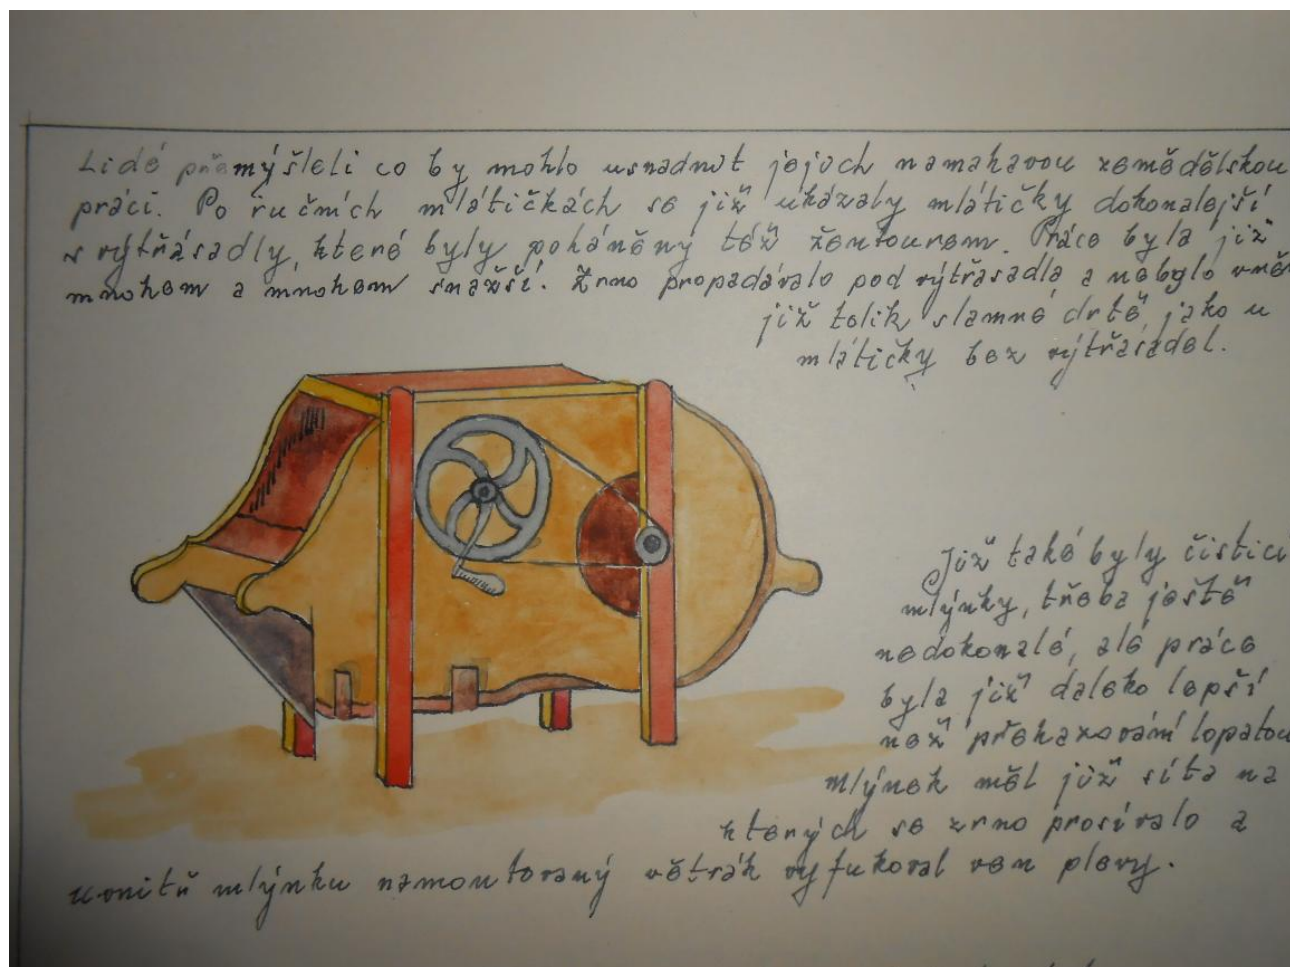 Lidé přemýšleli co by mohlo usnadnit jejich namahavou zemědělskou
práci. Po ručních mlátičkách se již ukázaly mlátičky dokonalejší
s výtřásadly, které byly poháněny též žentourem. Práce byla již
mnohem a mnohem snažší. Zrno propadávalo pod výtřasadla a nebylo
již tolik slamné drtě jako u
mlátičky bez výtřasadel.
Již také byly čistící
mlýnky, třeba ještě
nedokonalé, ale práce
byla již daleko lepší
než přehazování lopatou
mlýnek měl již síta na
kterých se zrno prosívalo a
uvnitř mlýnku namontovaný větrák vyfukoval ven plevy.